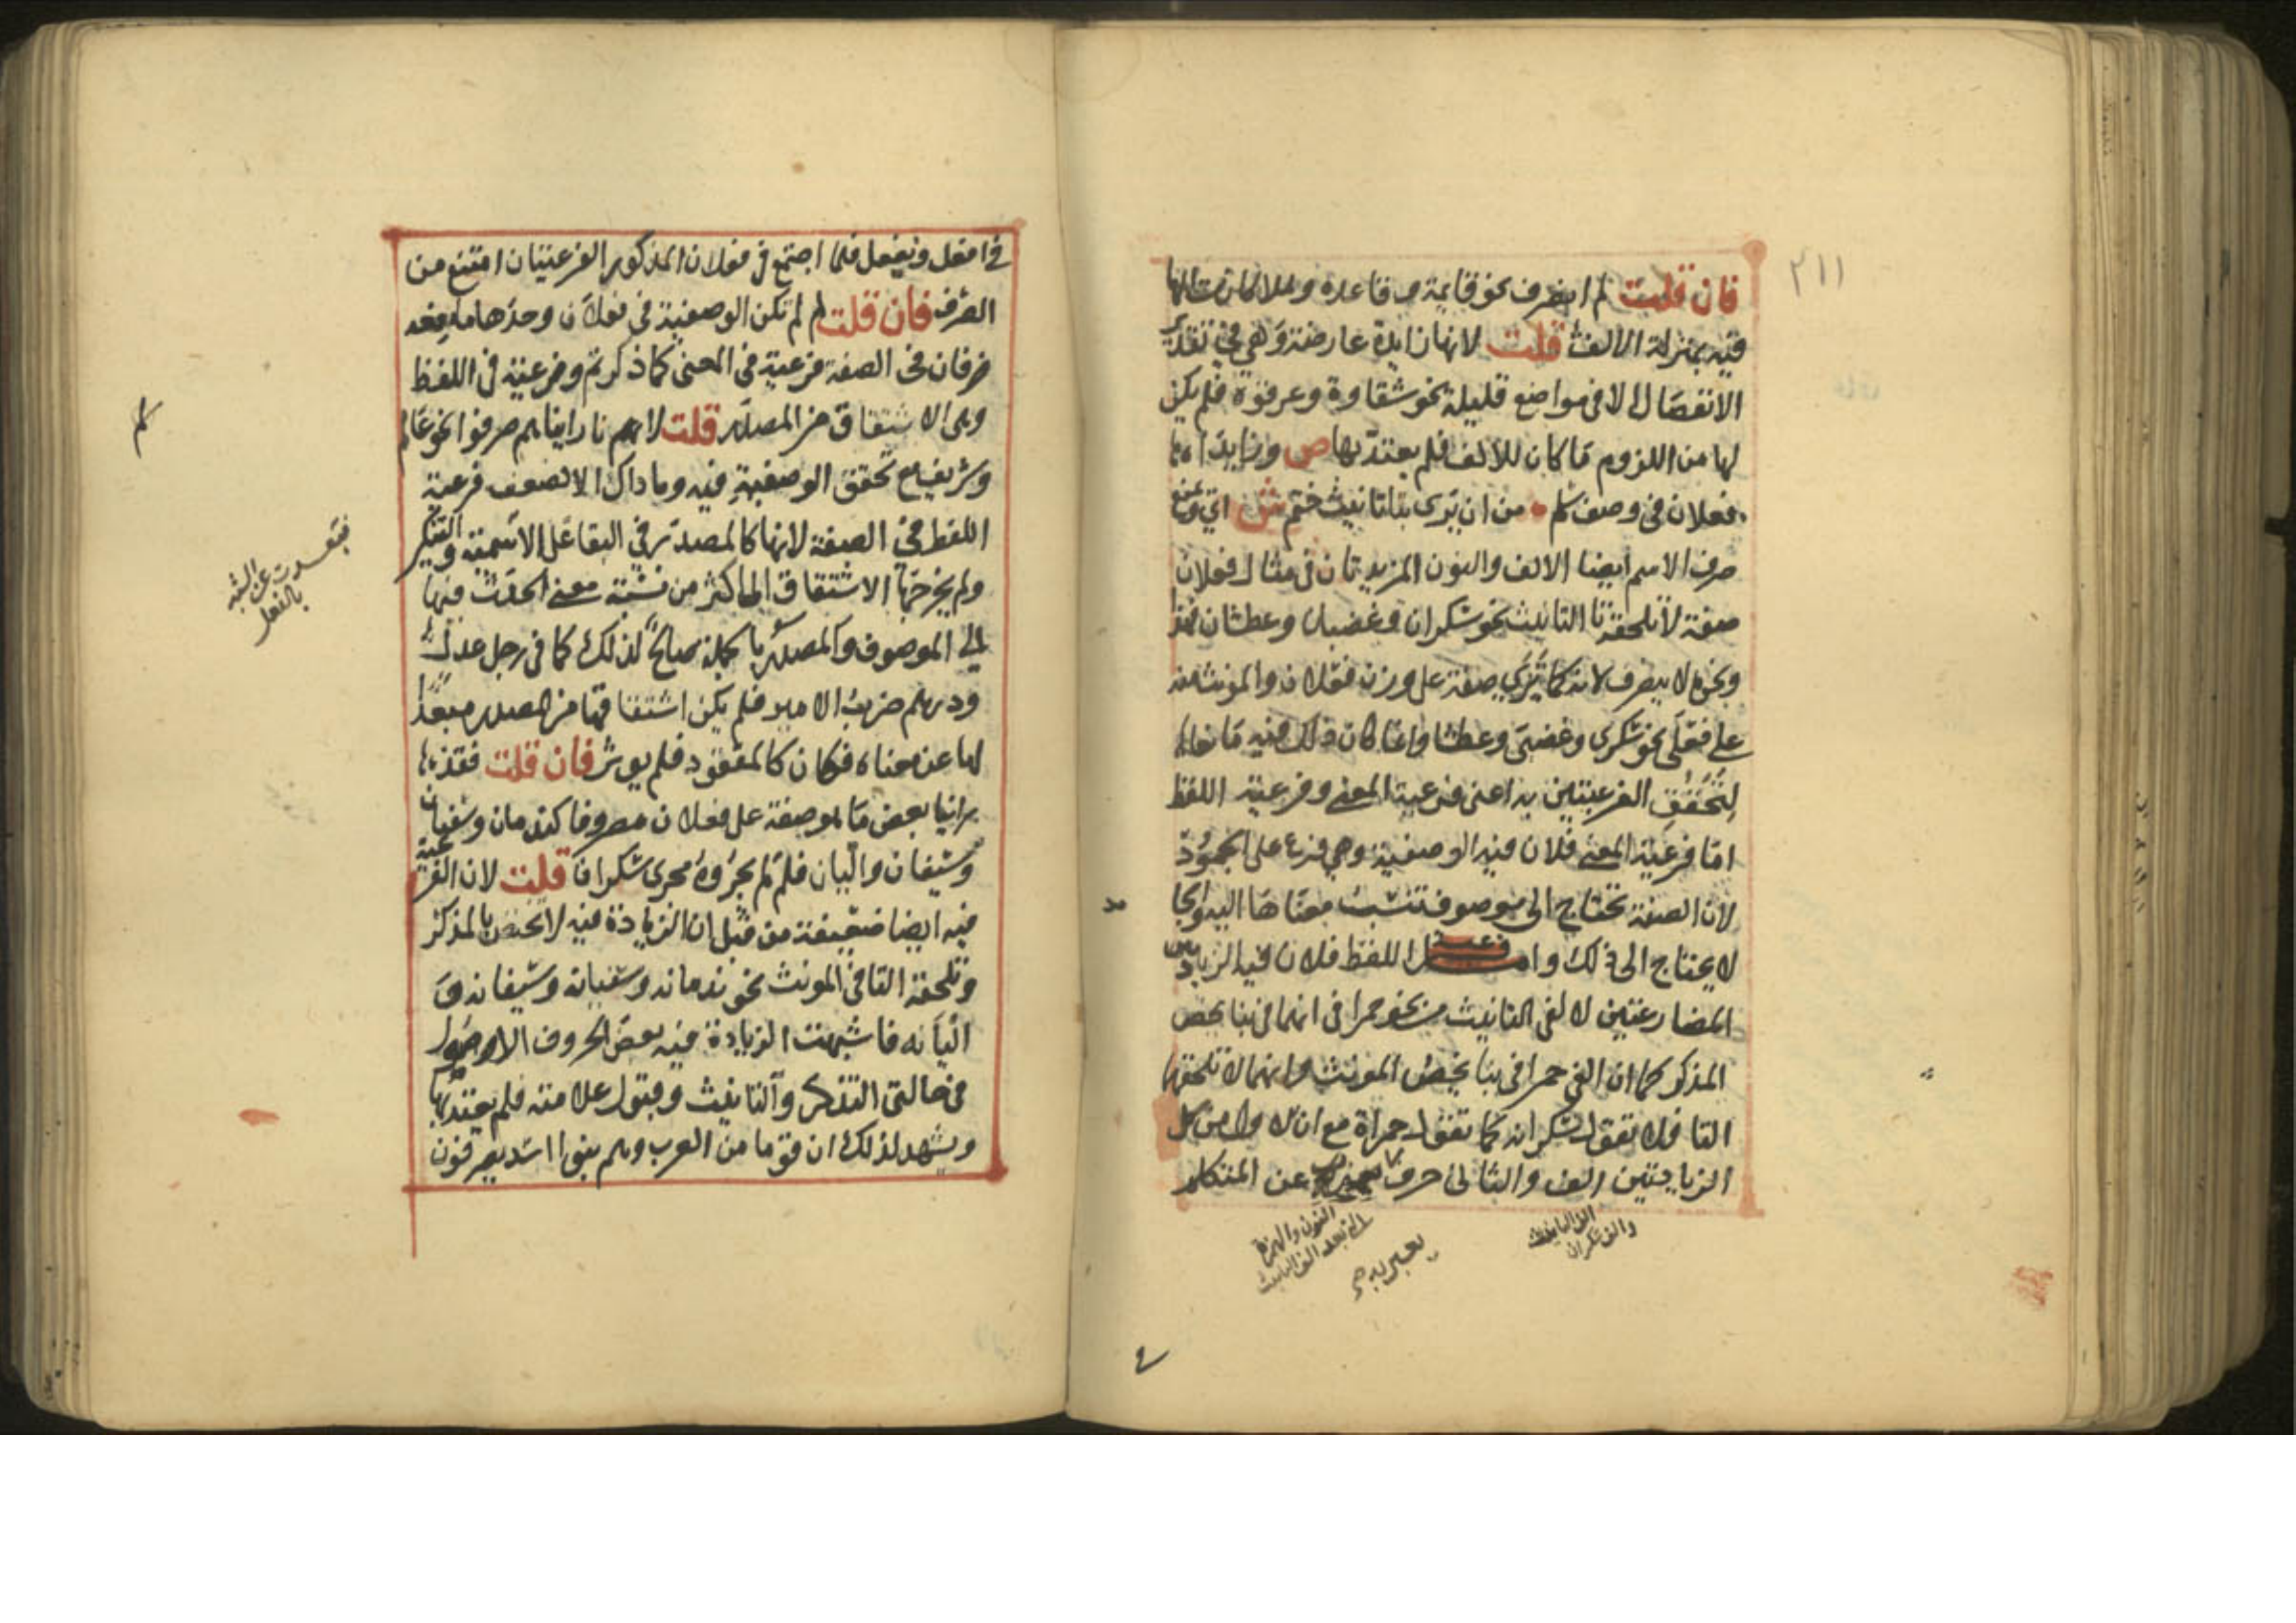 ٢١١
فان قلت لم انصرف نحو قايمة و قاعدة وهلا كانت الها
فيه بمنزلة الالف قلت لانها زايدة عارضة وهي في تقدير
الانفصال الا في مواضع قليلة نحو شقاوة وعرقوة فلم يكن
لها من اللزوم ما كان للالف فلم يعتد بها ص وزايدا
فعلان في وصف سلم من ان يرى بتا تانيث ختم ش اي ومنع
صرف الاسم ايضا الالف والنون المزيدتان في مثال فعلان
صفة لا تلحقه تا التانيث نحو سكران وغضبان وعطشان فهذا
ونحوه لا ينصرف لانه كما ترى صفة على وزن فعلان والمونث منه
على فعلى نحو سكرى وغضبى وعطشا وانما كان ذلك فيه مانعا
لتحقق الفرعيتين به اعنى فرعية المعنى وفرعية اللفظ
اما فرعية المعنى فلان فيه الوصفية وهي فرع على الجمود
لان الصفة تحتاج الى موصوف تنسب معناها اليه والجا
لا يحتاج الى ذلك واما اللفظ فلان فيه الزيادتين
المضارعتين لالفي التانيث من نحو حمرا في انهما في بنا يخص
المذكر كما ان الفي حمرا في بنا يخص المونث وانهما لا تلحقها
التا فلا تقول سكرانه كما تقول حمراة مع ان الاول من كل
الزيادتين الف والثاني حرف عن المتكلم
الف التانيث
والف سكران
النون والهمزة
التي بعد الف التانيث
يعبر به
في افعل ونفعل فلما اجتمع في فعلان المذكور الفرعيتان امتنع من
الصرف فان قلت لم لم تكن الوصفية في فعلان وحدها مانعه
فان في الصفة فرعية في المعنى كما ذكرتم وفرعية في اللفظ
وهي الاشتقاق من المصدر قلت لانا رايناهم صرفوا نحو عالم
وشريف مع تحقق الوصفية فيه وما ذاك الا لضعف فرعية
اللفظ في الصفة لانها كالمصدر في البقا على الاسمية والتنكير
ولم يخرجها الاشتقاق الى اكثر من نسبة معنى الحدث فيها
الى الموصوف والمصدر بالجملة صالح لذلك كما في رجل عدل
ودرهم ضرب الامير فلم يكن اشتقاقها من المصدر مبعدا
لها عن معناه فكان كالمفقود فلم يوثر فان قلت فقد
راينا بعض ما هو صفة على فعلان مصروفا كندمان وسفيان
وسيفان واليان فلم لم يجروه مجرى سكران قلت لان الفرعية
فيه ايضا ضعيفة من قبل ان الزيادة فيه لا تختص بالمذكر
وتلحقه التا في المونث نحو ندمانه وسفيانه وسيفانه و
اليانه فاشبهت الزيادة فيه بعض الحروف الاصول
في حالتي التذكر والتانيث وقبول علامته فلم يعتد بها
ويشهد لذلك ان قوما من العرب وهم بنوا اسد يصرفون
فتعددت عن الشبه
بالفعل